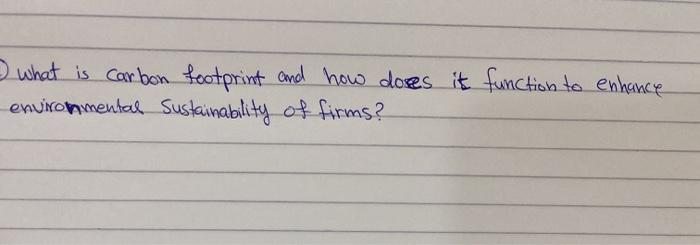 ) what is carbon footprint and how does it function to enhance
environmental Sustainability of firms?